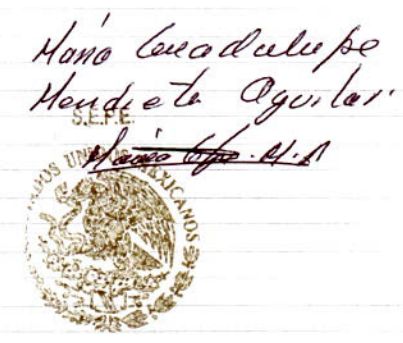 María Guadalupe
Mendieta Aguilar
S.E.P.E.
María Gpe. M. A
ESTADOS UNIDOS MEXICANOS